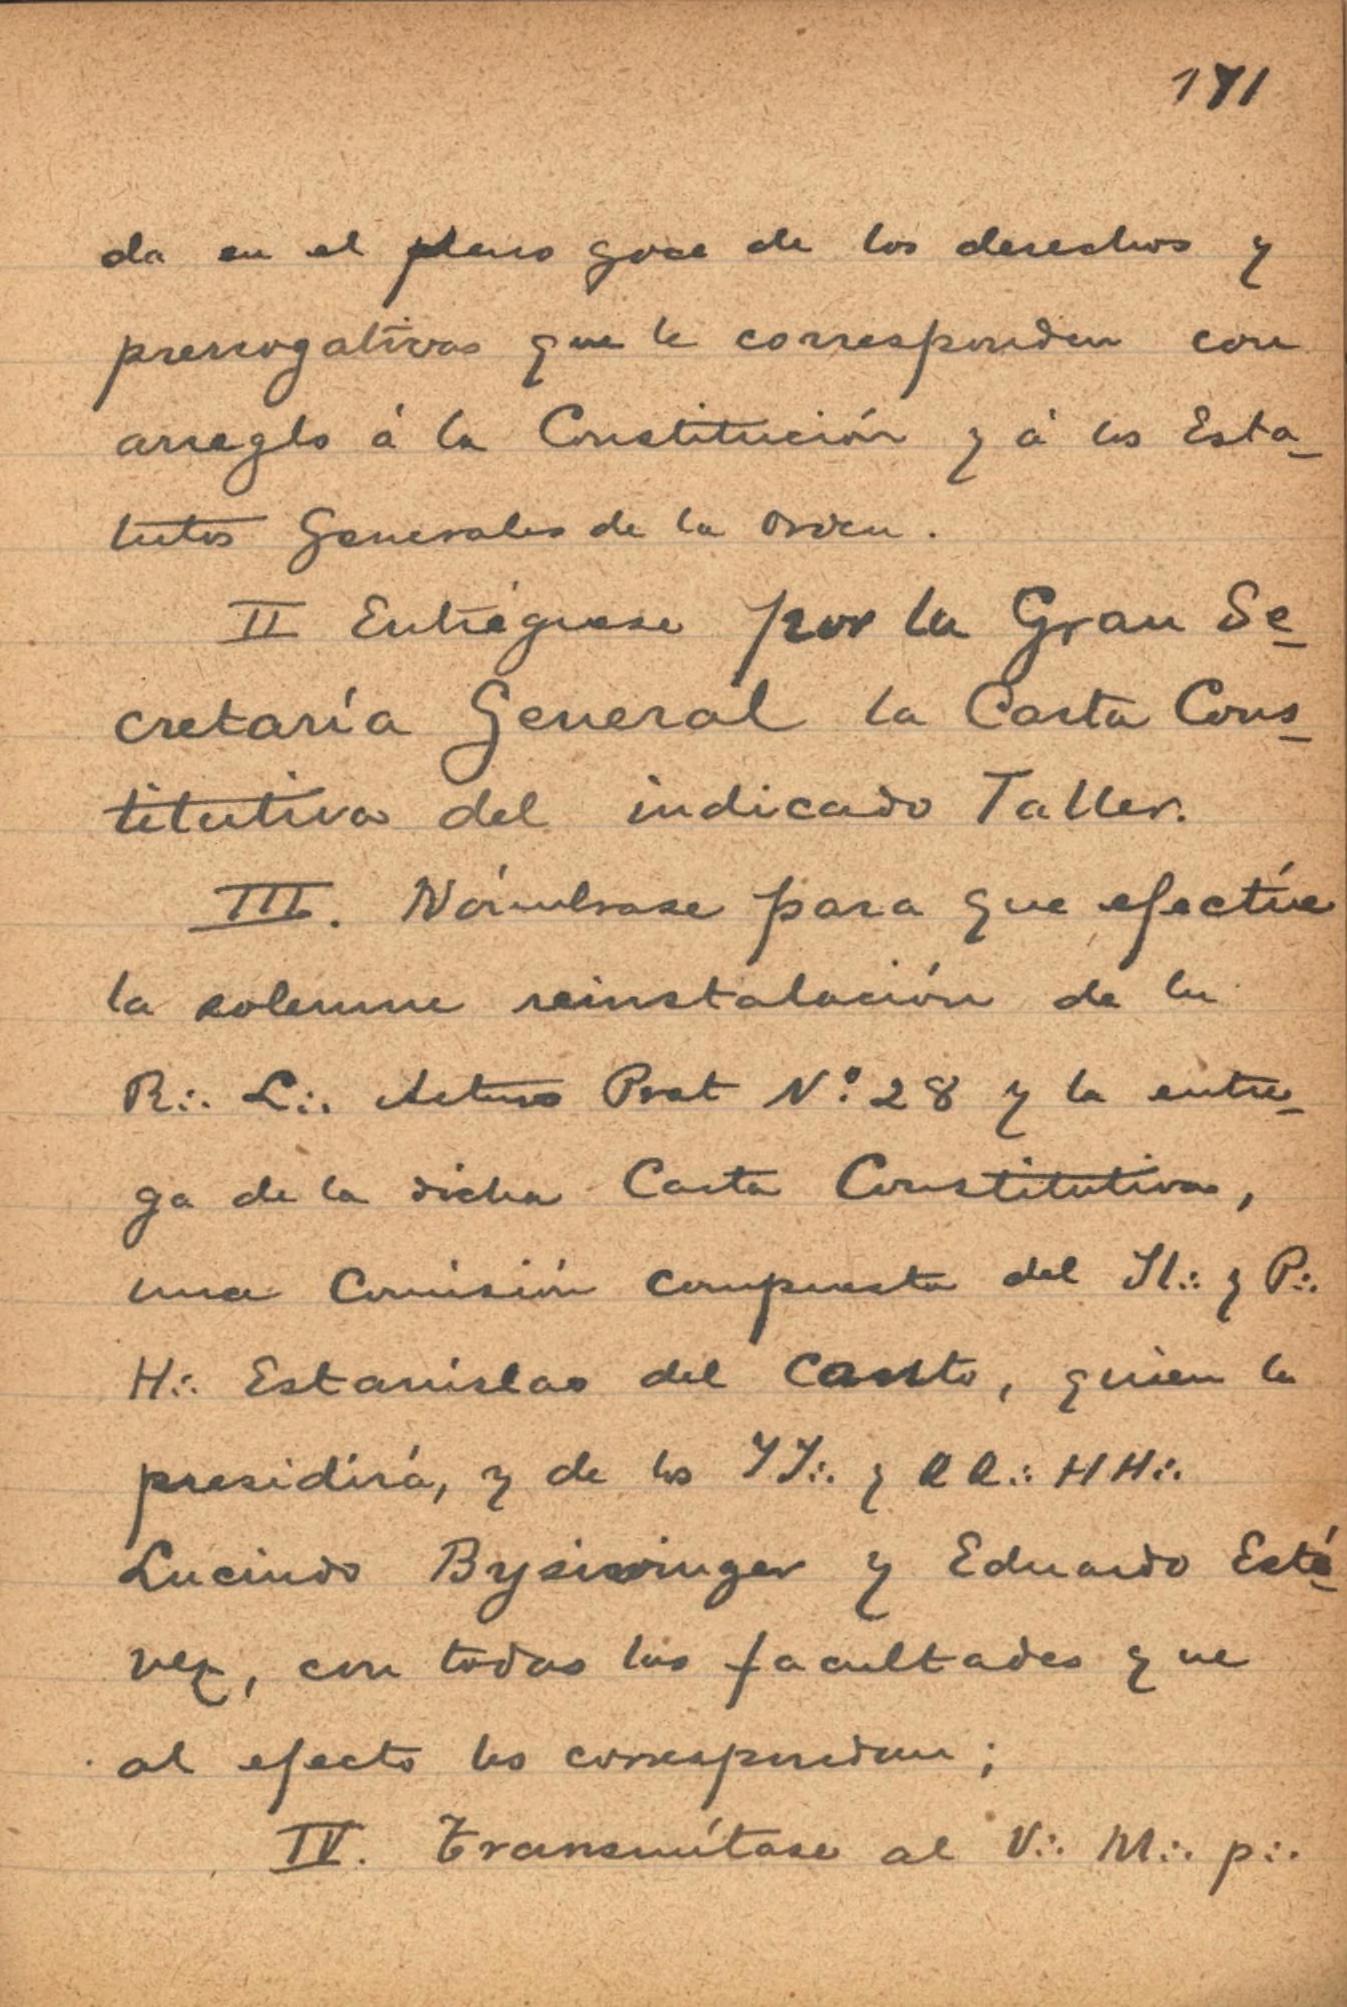 171
da en el pleno goce de los derechos y
prerrogativas que le corresponden con
arreglo á la Constitución y á los Esta-
tutos Generales de la Orden.
II Entréguese por la Gran Se-
cretaría General la Carta Cons-
titutiva del indicado Taller.
III. Nómbrase para que efectúe
la solemne reinstalación de la
R∴ L∴ Arturo Prat N.º 28 y la entre-
ga de la dicha Carta Constitutiva,
una Comisión compuesta del Il∴ y P∴
H∴ Estanislao del Canto, quien la
presidirá, y de los II∴ y RR∴ HH∴
Lucindo Bysivinger y Eduardo Esté-
vez, con todas las facultades que
al efecto les correspondan;
IV. Transmítase al V∴ M∴ p∴